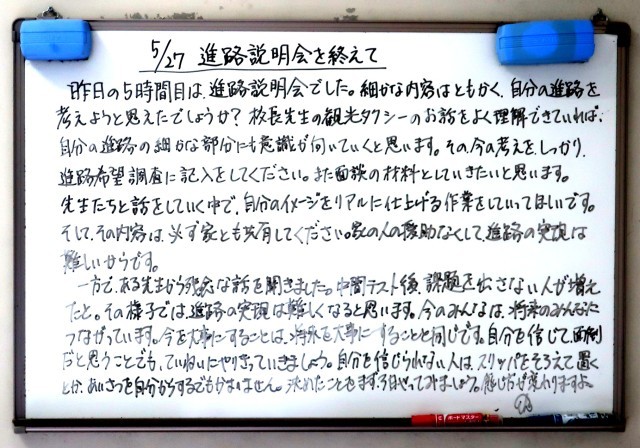 5/27 進路説明会を終えて
昨日の5時間目は、進路説明会でした。細かな内容はともかく、自分の進路を
考えようと思えたでしょうか？校長先生の観光タクシーのお話をよく理解できていれば、
自分の進路の細かな部分にも意識が向いていくと思います。その、今の考えを、しっかり、
進路希望調査に記入をしてください。また面談の材料としていきたいと思います。
先生たちと話をしていく中で、自分のイメージをリアルに仕上げる作業をしていってほしいです。
そして、その内容は、必ず家とも共有してください。家の人の援助なくして、進路の実現は
難しいからです。
一方で、ある先生から残念な話を聞きました。中間テスト後、課題を出さない人が増え
たと。その様子では、進路の実現は難しくなると思います。今のみんなは、将来のみんなに
つながっています。今を大事にすることは、将来を大事にすることと同じです。自分を信じて、面倒
だと思うことでも、ていねいにやりきっていきましょう。自分を信じられない人は、スリッパをそろえて置く
とか、あいさつを自分からするでもかまいません。決めたことをまず、やってみましょう。感じ方が変わりますよ。
ボードマスター